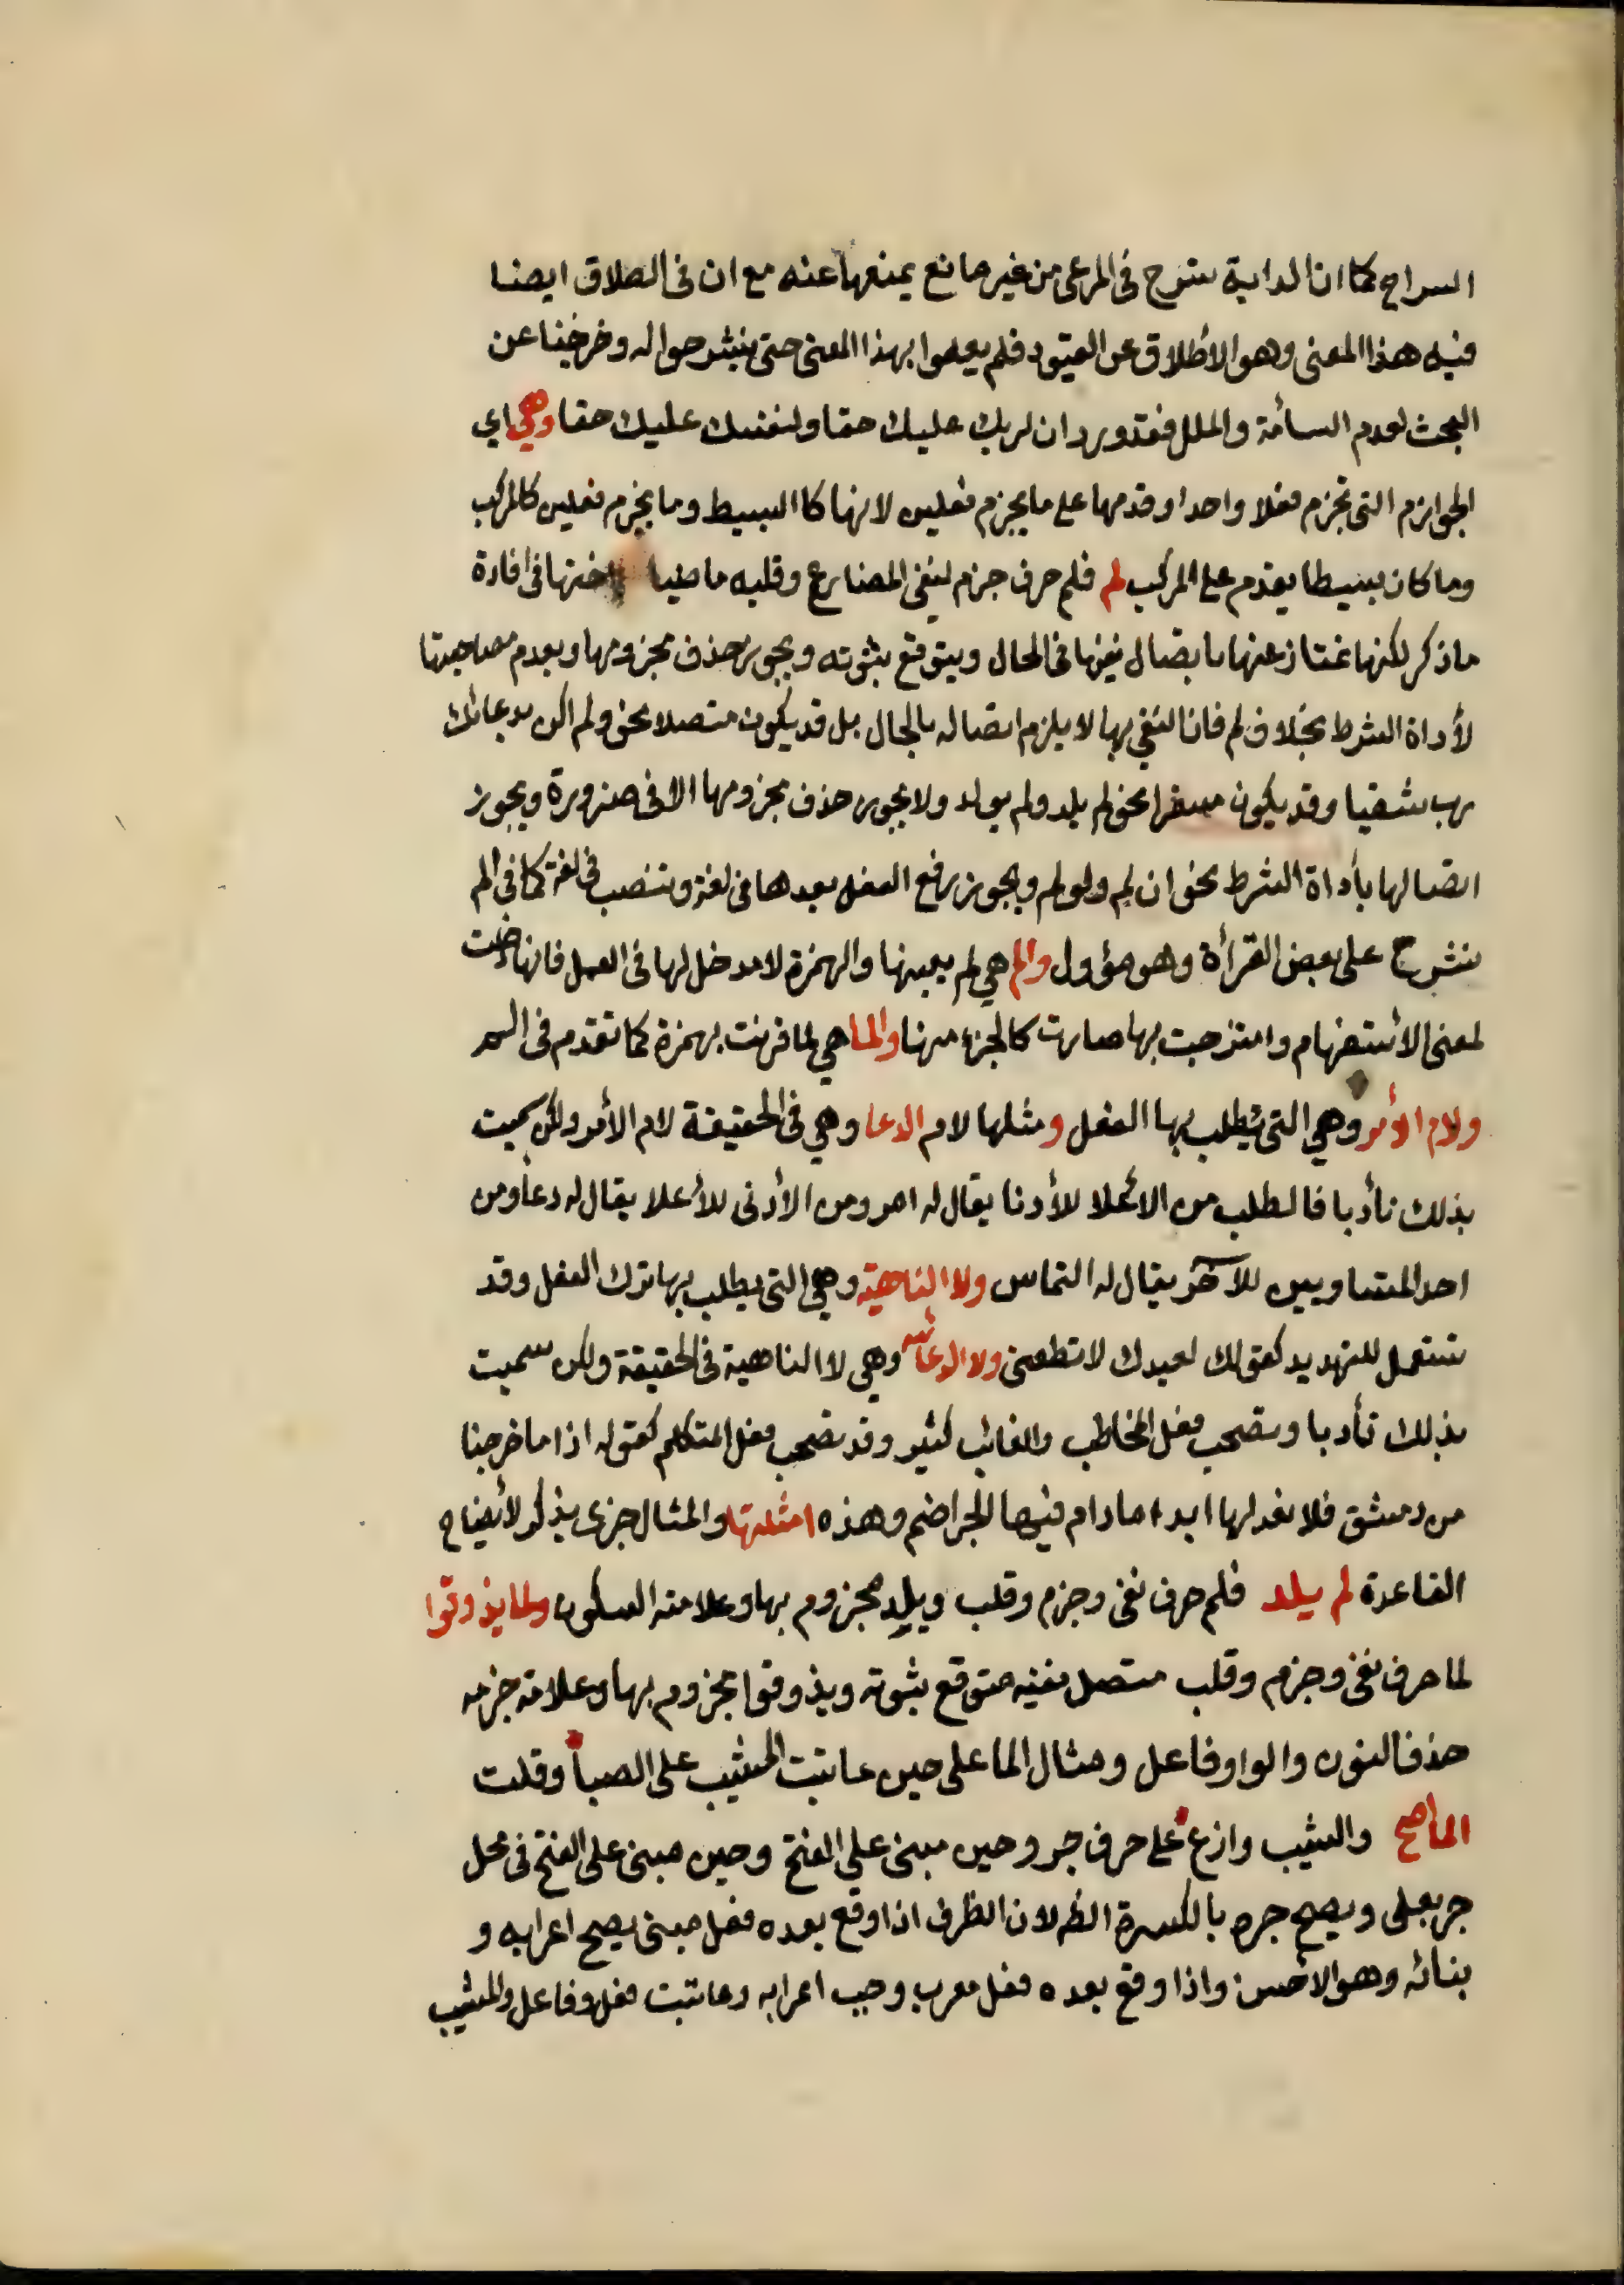 السراح كما ان الدابة تسرح في المرعى من غير مانع يمنعها عنه مع ان في الطلاق ايضا
فيه هذا المعنى وهو الأطلاق عن القيود فلم يعملوا بهذا المعنى حتى ينشرحوا له وخرجنا عن
البحث لعدم السأمة والملل فقد ورد ان لربك عليك حقا ولنفسك عليك حقا وهي اي
الجوازم التي تجزم فعلا واحدا وقدمها على ما يجزم فعلين لانها كا البسيط وما يجزم فعلين كالمركب
وما كان بسيطا يقدم على المركب لم فلم حرف جزم لنفي المضارع وقلبه ماضيا اختها في افادة
ما ذكر لكنها تمتاز عنها باتصال نفيها في الحال ويتوقع بثوته ويجوز حذف مجزومها وبعدم مصاحبتها
لأداة الشرط بخلاف لم فان النفي بها لا يلزم اتصاله بالحال بل قد يكون متصلا نحو ولم اكن بدعائك
رب شقيا وقد يكون مستمرا نحو لم يلد ولم يولد ولا يجوز حذف مجزومها الا في ضرورة ويجوز
اتصالها بأداة الشرط نحو ان لم ولو لم ويجوز رفع الفعل بعدها في لغة وتنصب في لغة كما في الم
نشرح على بعض القرأة وهو مؤول والم هي لم بعينها والهمزة لا مدخل لها في العمل فانها دخلت
لمعنى الأستفهام وامتزجت بها صارت كالجزء منها والما هي لما قرنت بهمزة كما تقدم في الم
ولام الأمر وهي التي يطلب بها الفعل ومثلها لام الدعا وهي في الحقيقة لام الأمر ولكن سميت
بذلك تأدبا فالطلب من الاعلا للأدنا يقال له امر ومن الأدنى للأعلا يقال له دعأ ومن
احد المتساويين للآخر يقال له التماس ولا الناهية وهي التي يطلب بها ترك الفعل وقد
تستعمل للتهديد كقولك لعبدك لا تطعني ولا الدعائية وهي لا الناهية في الحقيقة ولكن سميت
بذلك تأدبا وتصحب فعل المخاطب والغائب كثير وقد تصحب فعل المتكلم كقوله اذا ما خرجنا
من دمشق فلا نعد لها ابدا ما دام فيها الجراضم وهذه امثلتها والمثال جزئ يذكر لأيضاح
القاعدة لم يلد فلم حرف نفي وجزم وقلب ويلد مجزوم بها وعلامته السكون ولما يذوقوا
لما حرف نفي وجزم وقلب متصل نفيه متوقع بثوته ويذوقوا مجزوم بها وعلامة جزمه
حذف النون والواو فاعل ومثال الما على حين عاتبت المشيب على الصبأ وقلت
الما أصح والشيب وازع على حرف جر وحين مبني على الفتح وحين مبني على الفتح في محل
جر بعلى ويصح جره بالكسرة الظ لان الظرف اذا وقع بعده فعل مبني يصح اعرابه و
بنائه وهو الاحسن واذا وقع بعده فعل معرب وجب اعرابه وعاتبت فعل وفاعل والمشيب